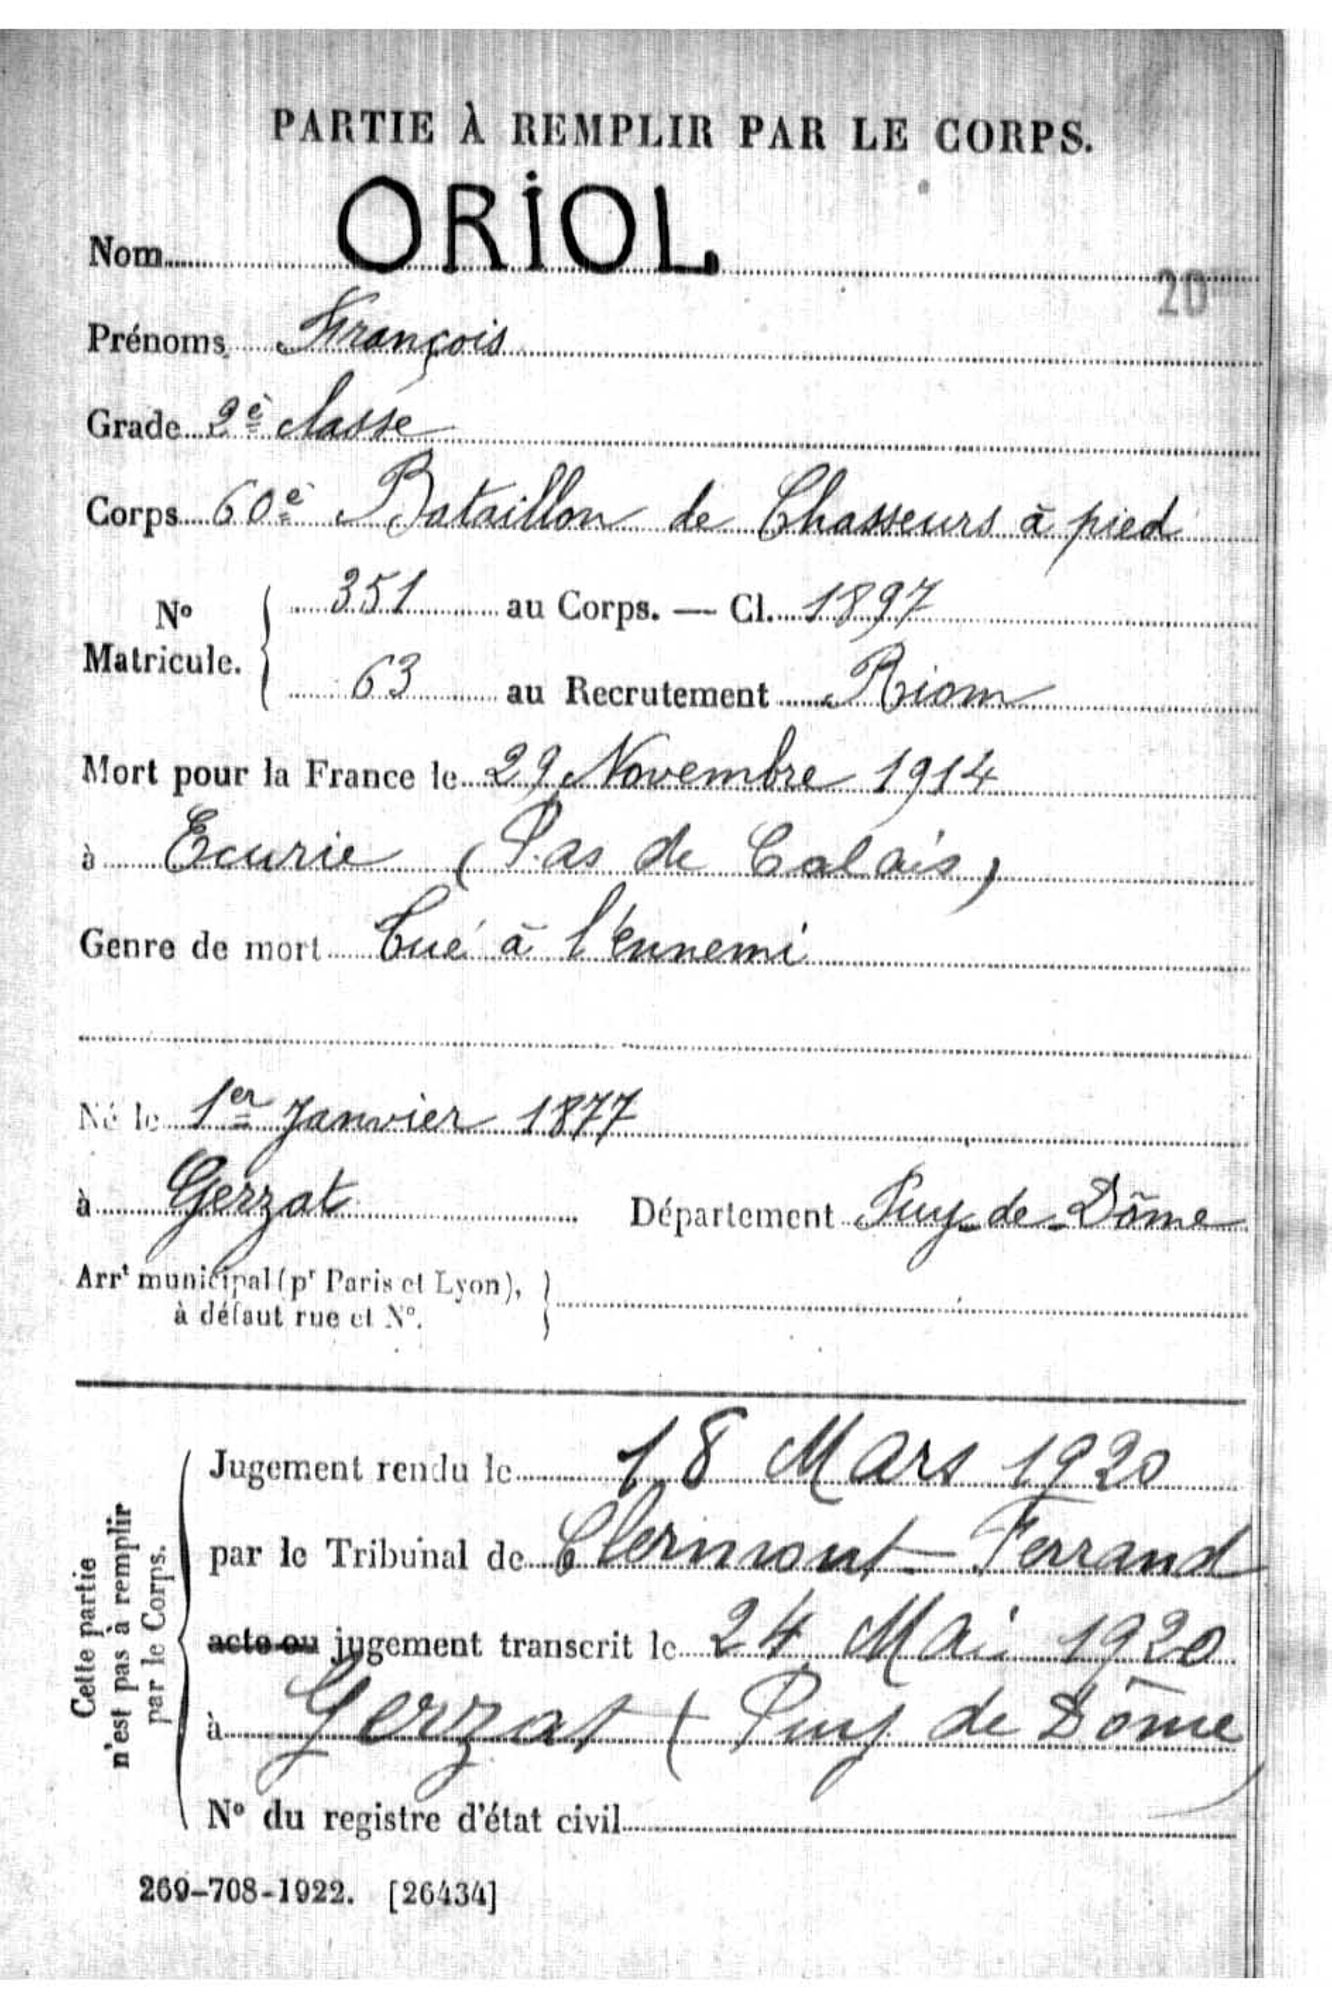 PARTIE À REMPLIR PAR LE CORPS.
Nom ORIOL
20
Prénoms François
Grade 2è classe
Corps 60è Bataillon de Chasseurs à pied
No Matricule. 351 au Corps. — Cl. 1897
63 au Recrutement Riom
Mort pour la France le 29 Novembre 1914
à Ecurie (Pas de Calais)
Genre de mort Tué à l'ennemi
Né le 1er Janvier 1877
à Gerzat Département Puy-de-Dôme
Arrt municipal (pr Paris et Lyon),
à défaut rue et N°.
Cette partie
n'est pas à remplir
par le Corps.
Jugement rendu le 18 Mars 1920
par le Tribunal de Clermont-Ferrand
acte ou jugement transcrit le 24 Mai 1920
à Gerzat (Puy de Dôme)
N° du registre d'état civil
269-708-1922. [26434]